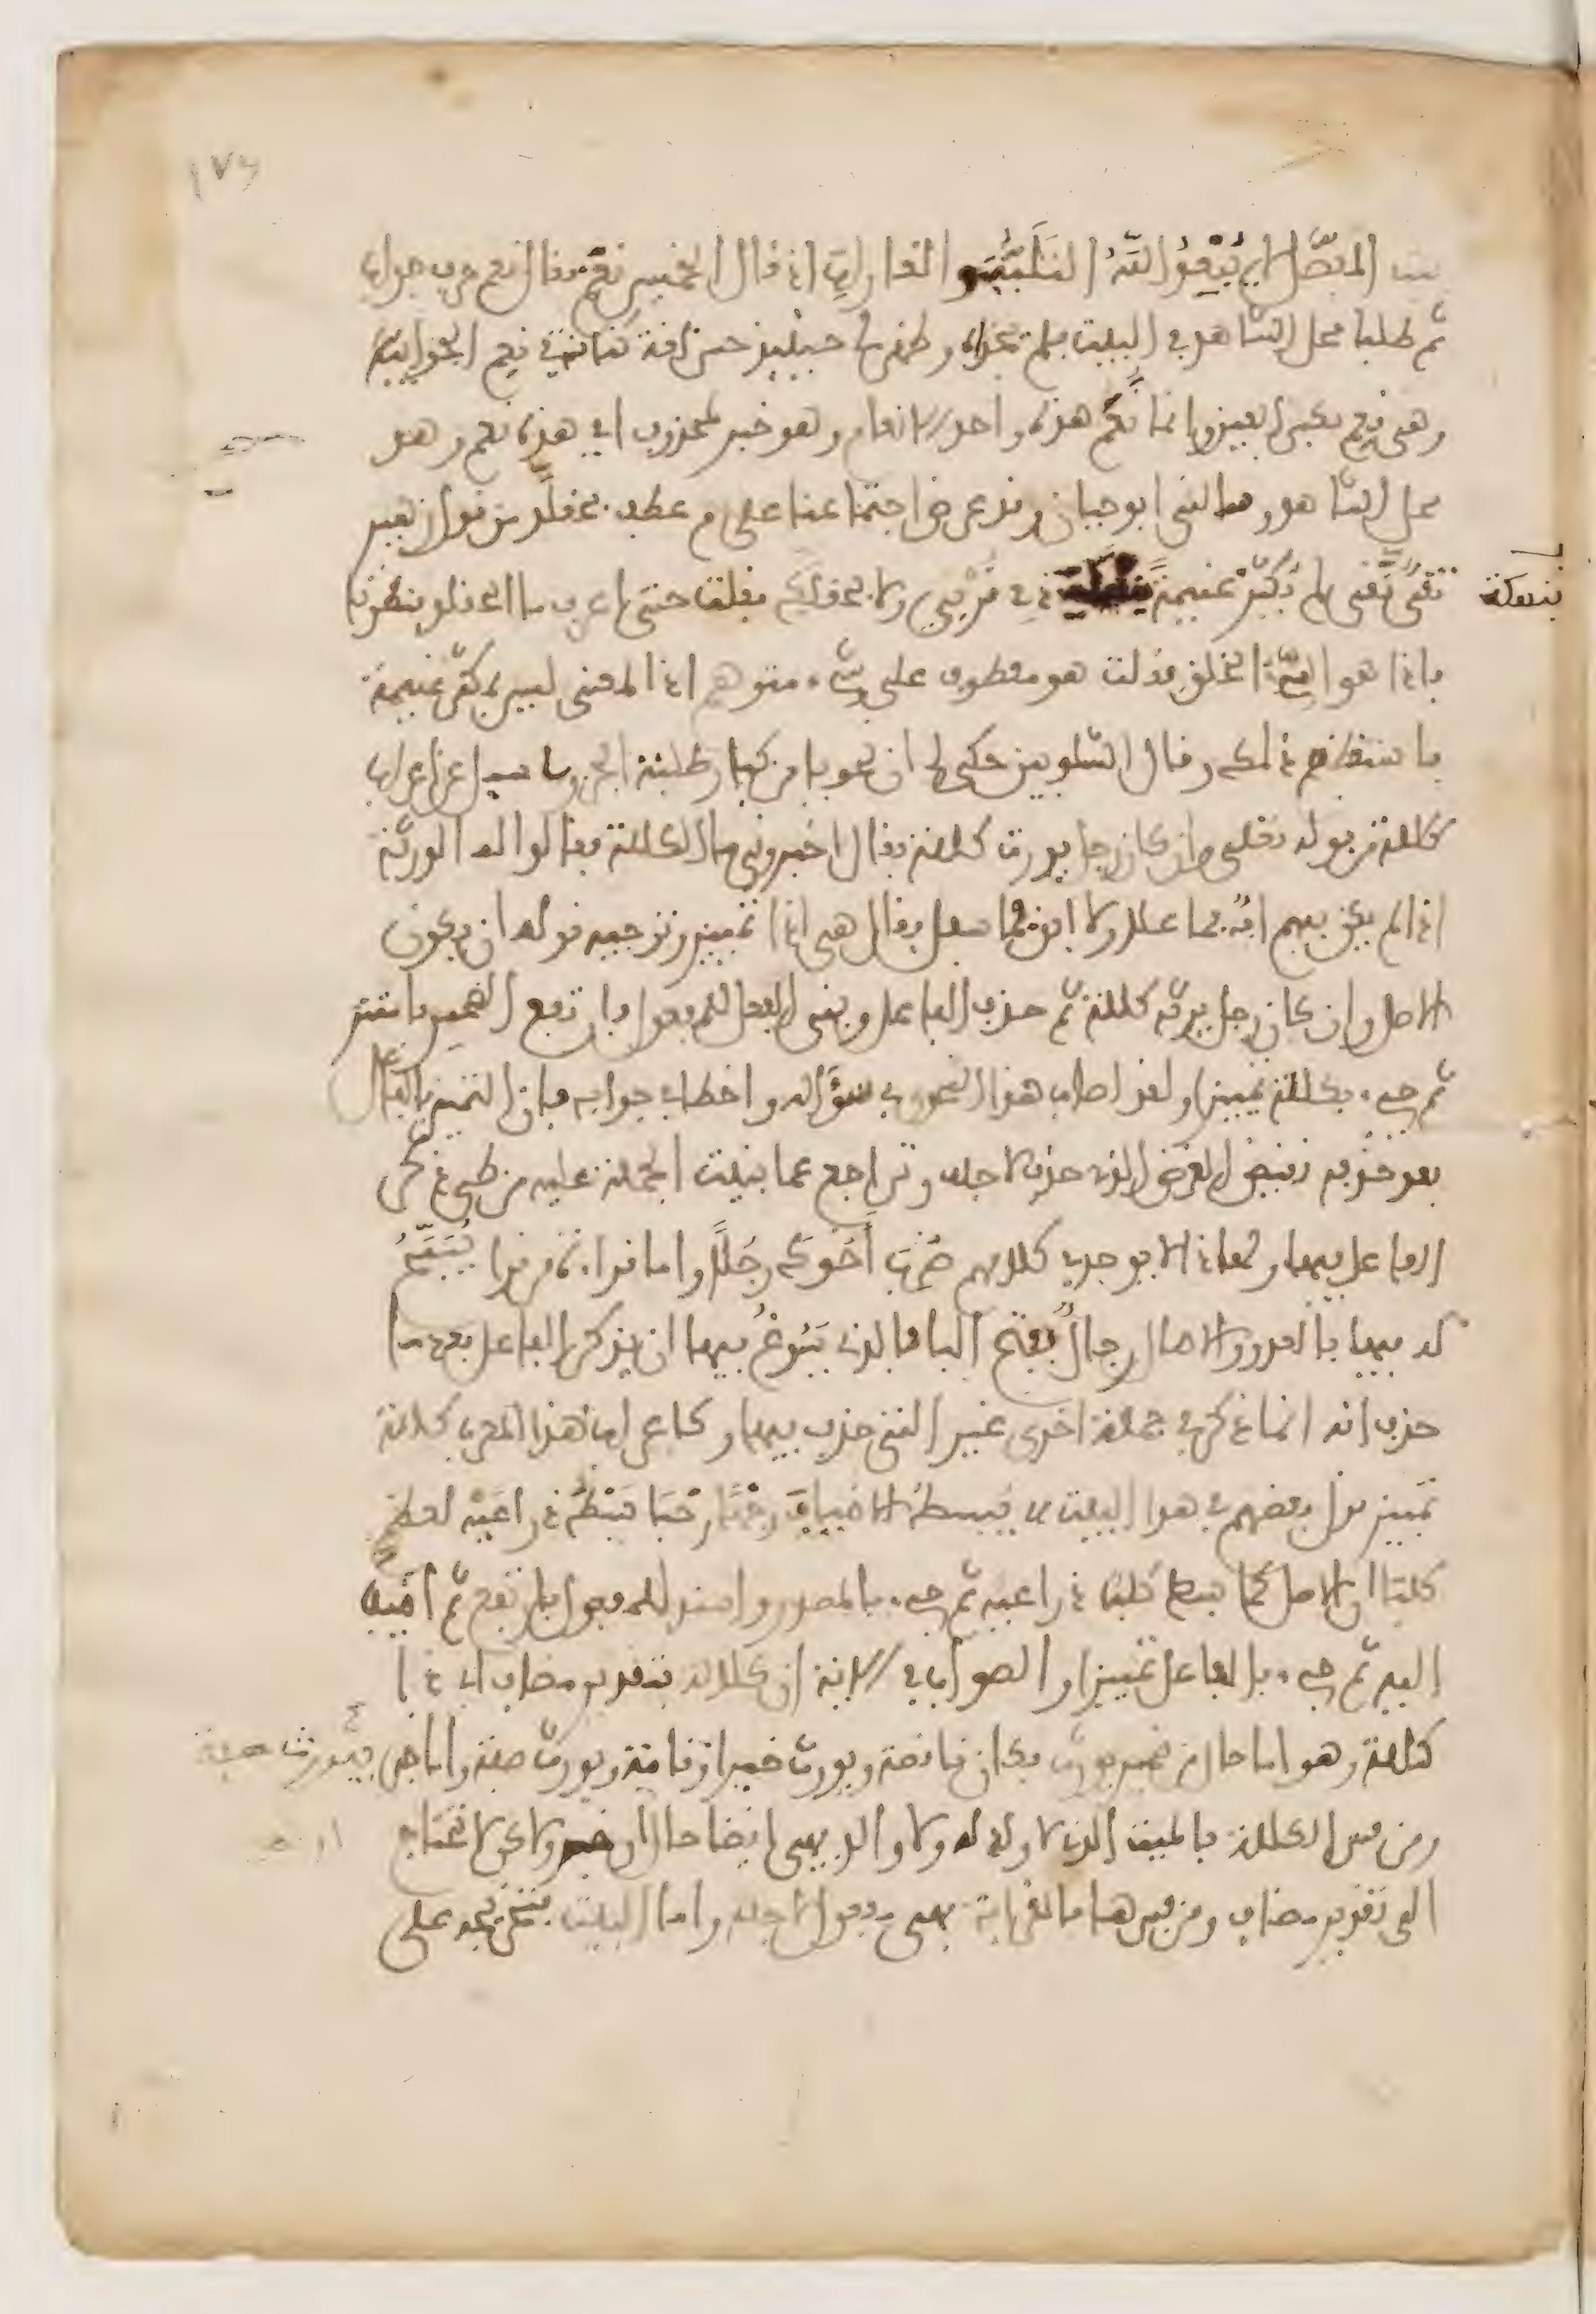 بيت المفصّل لا يُبْعِدُ اللّهُ التَلَبُّبَ والغارات اذ قال الخميس نعم فقال نعم حرف جواب
ثم طلبا محل الشاهد في البيت فلم يجداه وظهر لي حينئذ حسن لغة كنانة في نعم الجوابية
وهي نعم بكسر العين وانما نَعَم هذه واحد الانعام وهو خبر لمحذوف اي هذه نعم وهو
محل الشاهد وسالني ابو حيان وقد عرض اجتماعنا على م عطف بحقلد من قول زهير
تقي نقي لم يُكَثِّرْ غنيمة ذي قربى ولا بحقلد فقلت حتى اعرف ما الحقلد فنظرنا
بنهكة
فاذا هو السيّئ الخلق فقلت هو معطوف على شيء متوهم اذ المعنى ليس بمكثر غنيمة
فاستعظم ذلك وقال الشلوبين حكي لي ان نحويا من كبار طلبة الجزولي سيل عن اعراب
كلالة من قوله تعلى وان كان رجل يورث كلالة فقال اخبروني ما الكلالة فقالوا له الورثة
اذا لم يكن فيهم اب فما علا ولا ابن فما سفل فقال هي اذا تمييز وتوجيه قوله ان يكون
الاصل وان كان رجل يرثه كلالة ثم حذف الفاعل وبني الفعل للمفعول فارتفع الضمير واستتر
ثم جيء بكلالة تمييزا ولقد اصاب هذا النحوي في سؤاله واخطا في جوابه فان التمييز بالفاعل
بعد حذفه نقض للغرض الذي حذف لاجله وتراجع عما بنيت الجملة عليه من طي ذكر
الفاعل فيها ولهذا لا يوجد في كلامهم ضُرب أَخُوك رجُلًا واما قراءة من قرا يُسَبَّحُ
له فيها بالغدو والاصال رجالٌ بفتح البا فالذي يُسَوّغُ فيها ان يذكر الفاعل بعد ما
حذف انه انما ذكر في جملة اخرى غير التي حذف فيها وكاعراب هذا المعرب كلالة
تمييز قول بعضهم في هذا البيت يبسط للاضياف وجها رحبا بَسْطَ ذراعيه لعظم
كلبا ان الاصل كما بسط كلب ذراعيه ثم جيء بالمصدر واسند للمفعول فارتفع ثم اضيف
اليه ثم جيء بالفاعل تمييزا والصواب في الاية ان كلالة بتقدير مضاف اي ذا
كلالة وهو اما حال من ضمير يورث فكان ناقصة ويورث خبر او تامة ويورث صفة واما خبر فيورث صفة
ومن فسر الكلالة بالميت الذي لا ولد له ولا والد فهي ايضا حال او خبر ولاكن لا تحتاج
الى تقدير مضاف ومن فسرها بالقرابة فهي مفعول لاجله واما البيت فتخريجه على